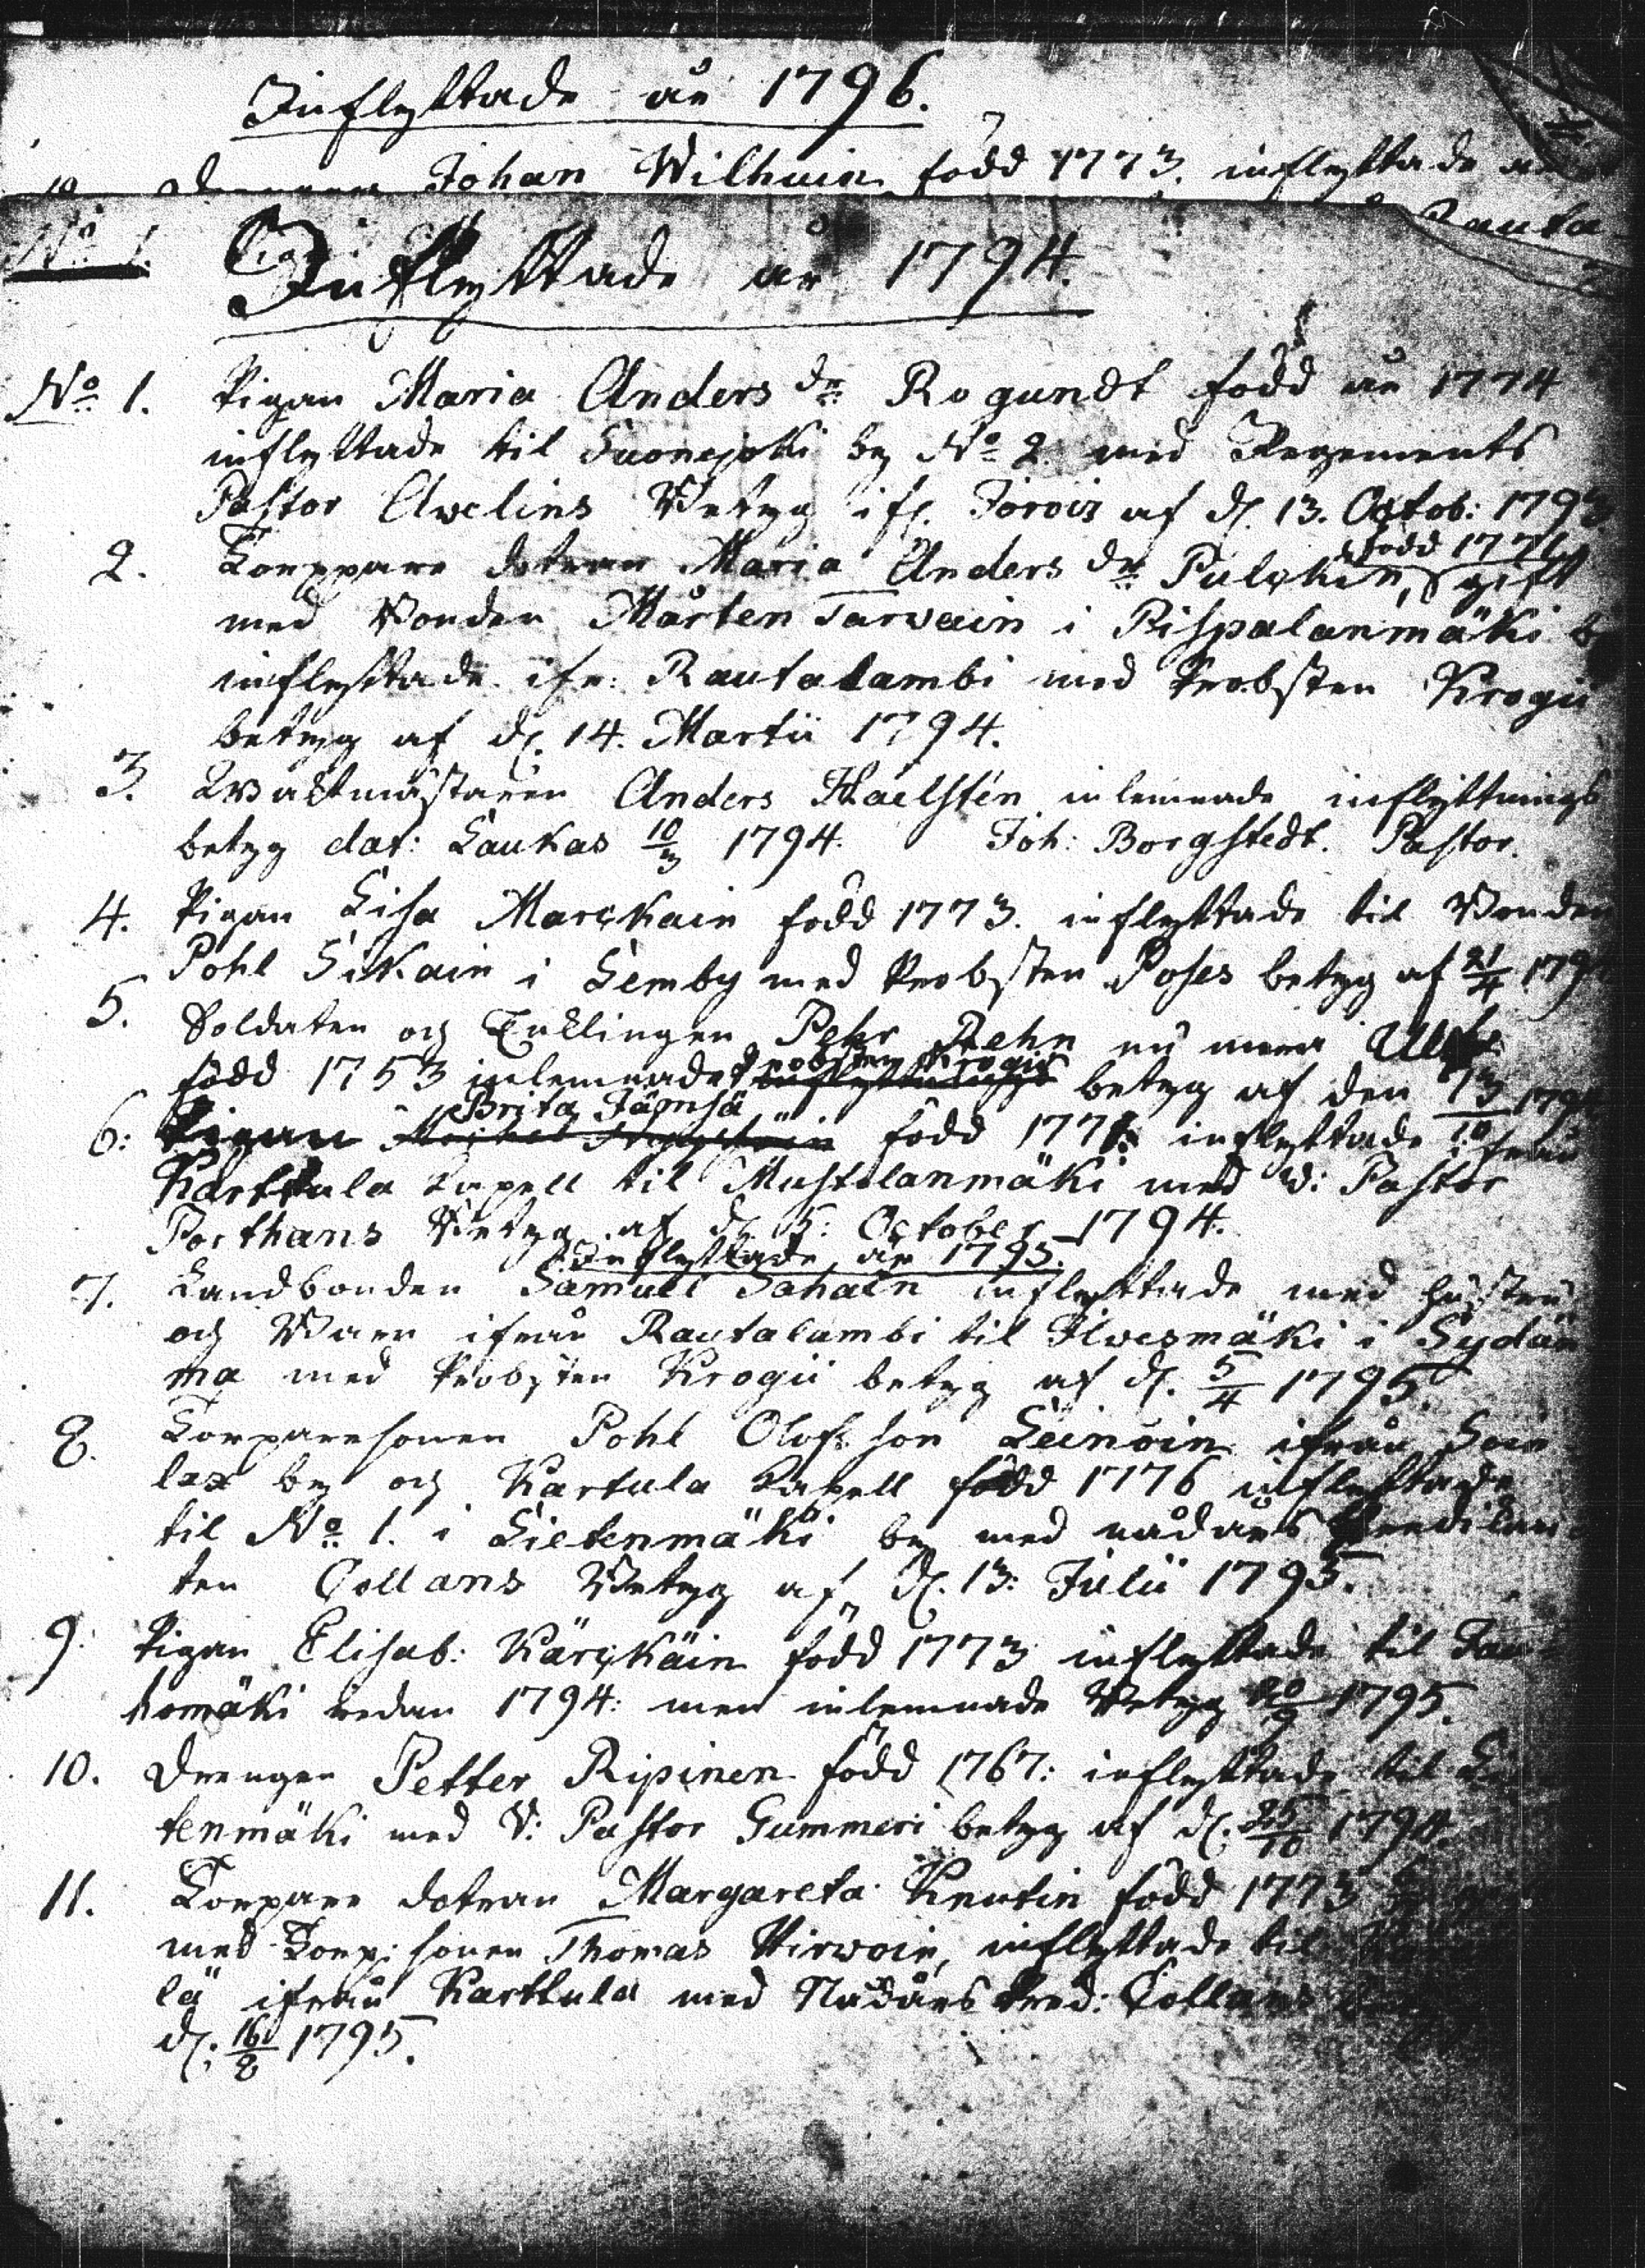 Inflyttade år 1796.
Johan Wilhuin född 1773. inflyttade
Rauta
No 1.
Inflyttade år 1794.
No 1. Pigan Maria Anders dr Rogundt född år 1774
inflyttade til Suonejoki by No 2 med Regements
Pastor Avelins Betyg ifr. Jorois af d. 13. Octob: 1793
2. Torppare dotren Maria Anders dr Pulckin, född 1771 gift
med Bonden Mårten Tarvain i Pispalanmäki
inflyttade ifr: Rautalambi med Probsten Krogii
betyg af d. 14. Martii 1794.
3. Wacktmästaren Anders Haelstén inlemnade inflyttnings
betyg dat: Laukas 10/3 1794. Joh: Borgstedt. Pastor.
4. Pigan Lisa Marckain född 1773. inflyttade til Bonden
Pohl Sikain i Lemby med Probsten Poses betyg af 21/4 179
5. Soldaten och Enklingen Pehr Rehn nu mera
född 1753 inlemnade Probsten Krogii betyg af den 13/10 179
6: Pigan Brita Jämsä född 177 inflyttade ifrån
Karttula Capell til Mustolanmäki med V: Pastor
Porthans Betyg af d. 5: October 1794.
Inflyttade år 1795.
7. Landbonden Samuel Sahain inflyttade med hustru
och Barn ifrån Rautalambi til Ilvesmäki i Sydän
ma med Probsten Krogii betyg af d. 5/4 1795.
8. Torparesonen Pohl Olofsson Leinoin ifrån Soin
lax by och Kartula Capell född 1776 inflyttade
til No 1. i Lietenmäki by med nådårs Predikan
ten Collans Betyg af d. 13: Julii 1795.
9. Pigan Elisab: Kärckäin född 1773 inflyttade til
homäki redan 1794: men inlemnade Betyg 20/9 1795.
10. Drengen Petter Ripinen född 1767: inflyttade til Lie
tenmäki med V: Pastor Gummeri betyg af d. 25/10 1794.
11. Torpare dotran Margareta Knutin född 1773
med Torp: sonen Thomas Hirvoin, inflyttade til
lä ifrån Karttula med Nådårs Pred: Collans
d: 16/8 1795.